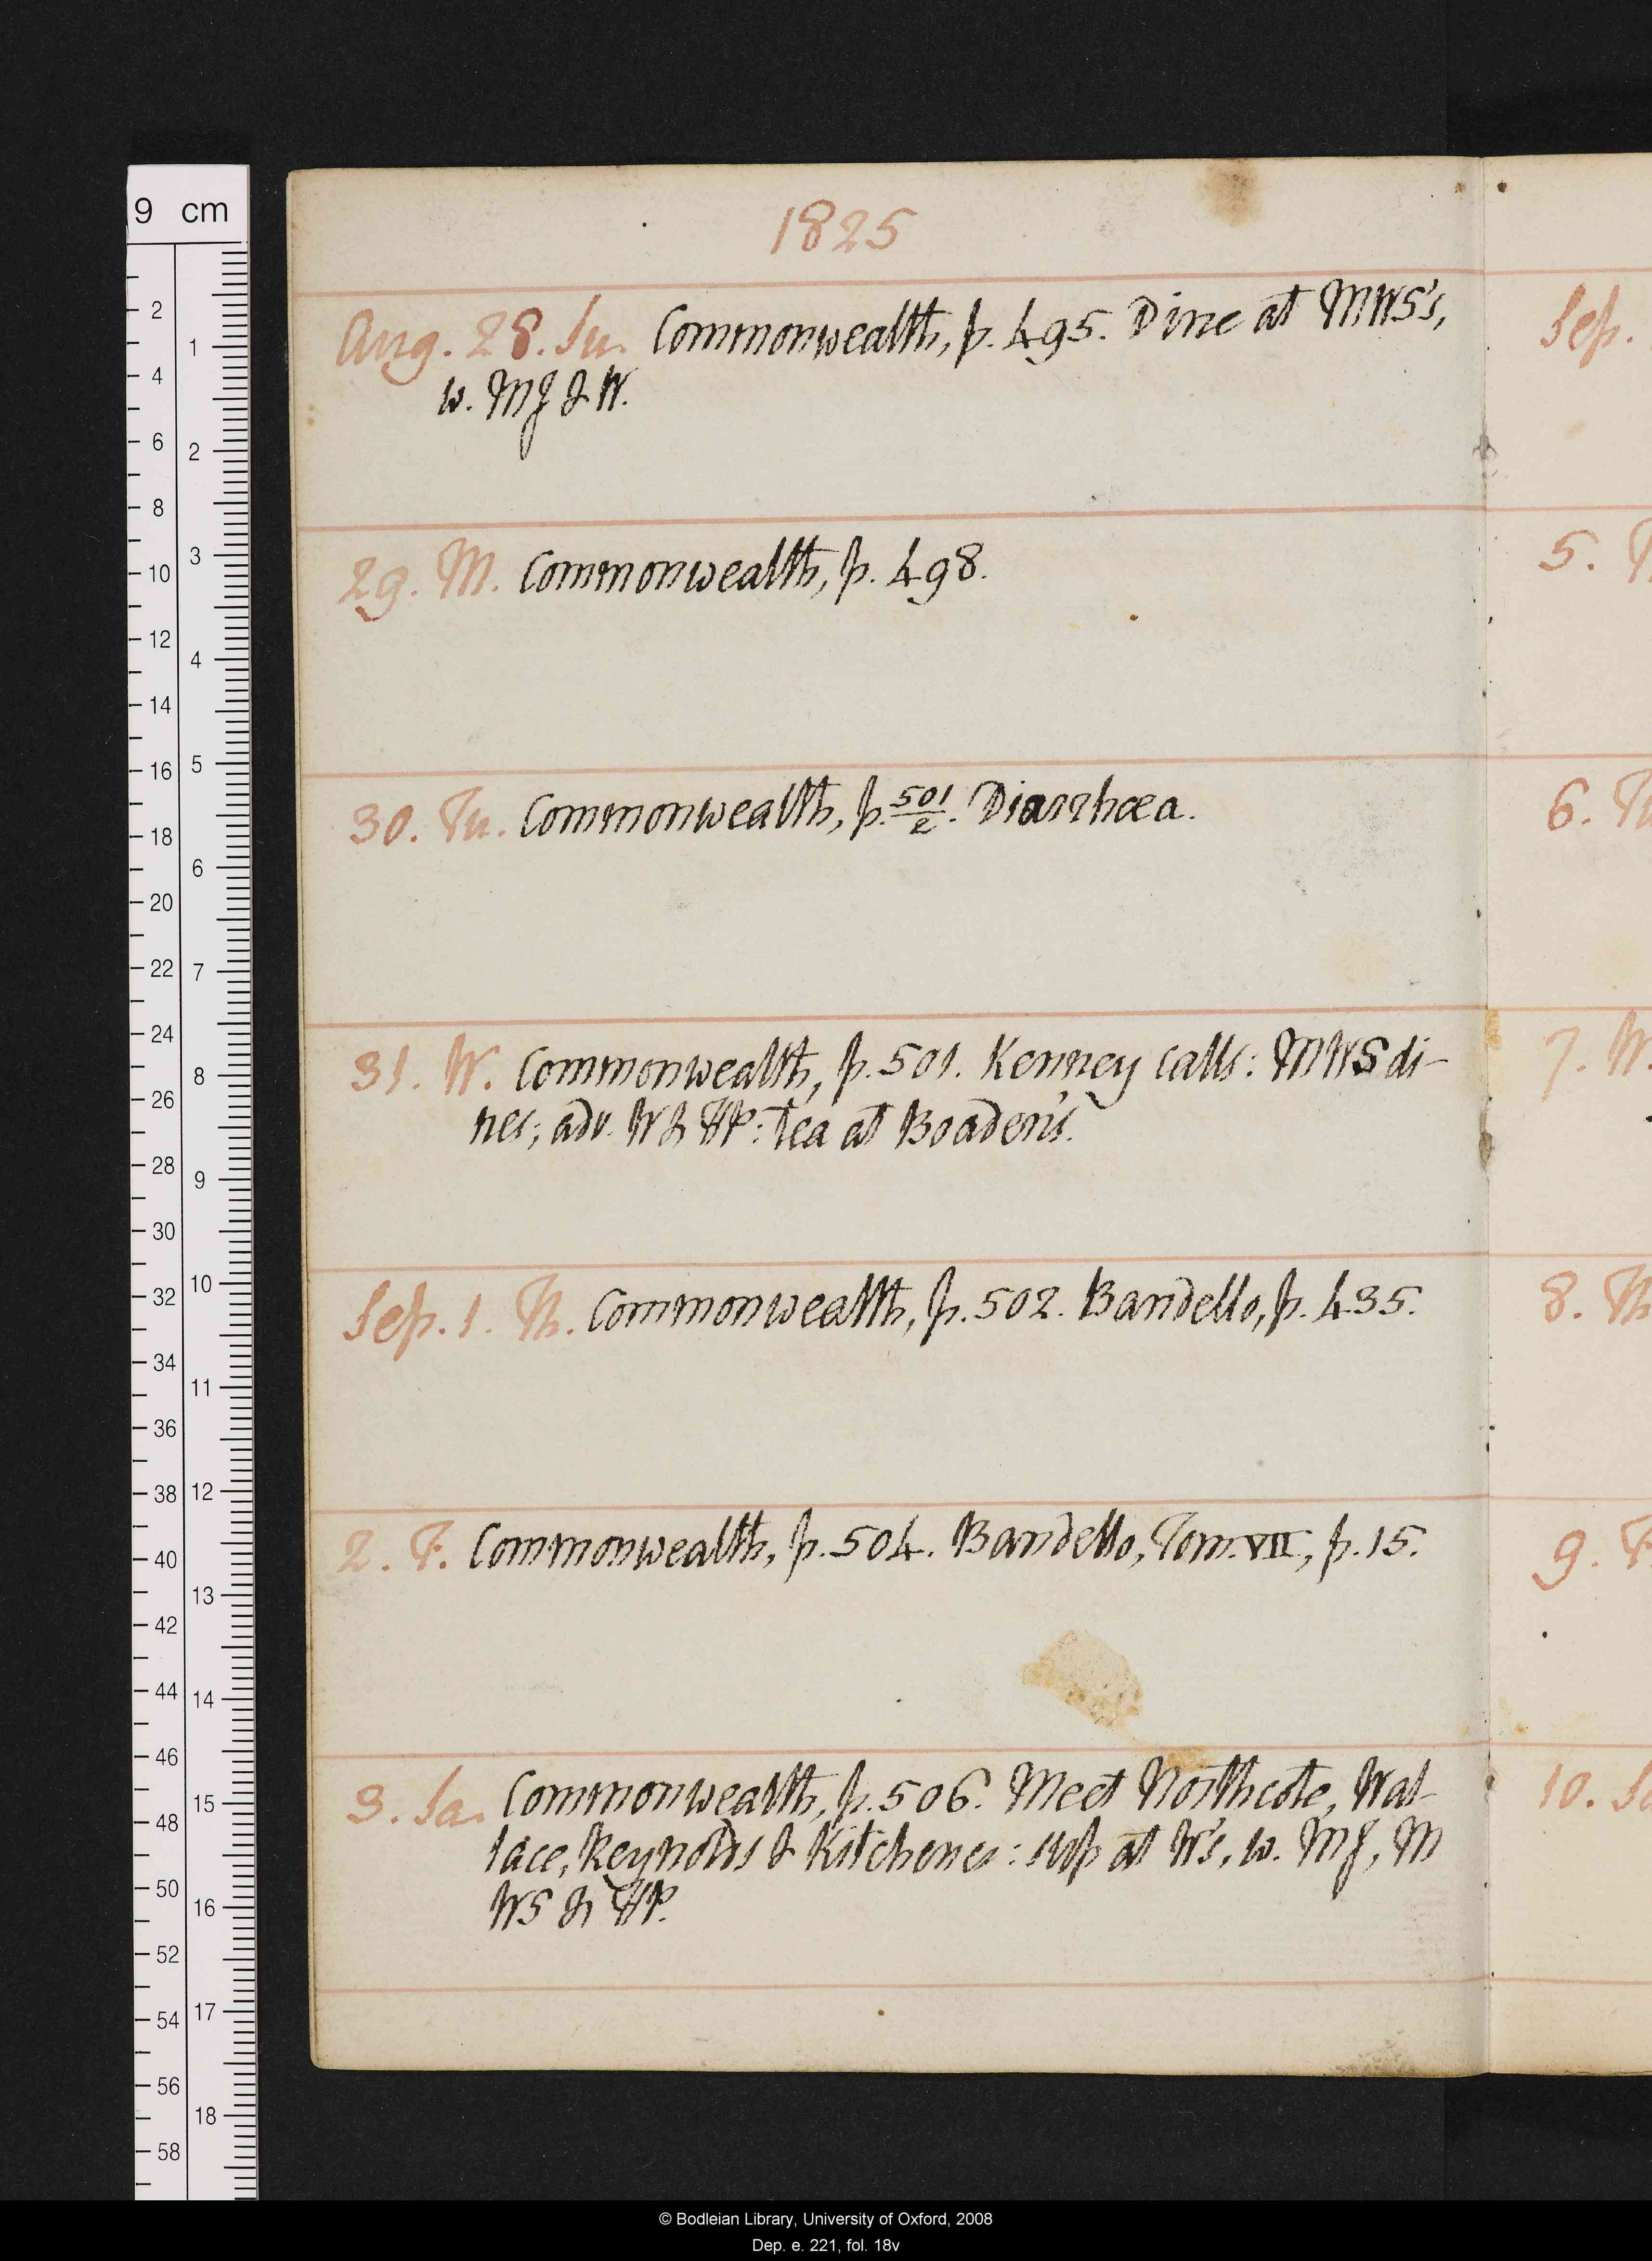 1825
Aug. 28. Su. Commonwealth, p. 495. Dine at MWS's,
w. MJ & W.
29. M. Commonwealth, p. 498.
30. Tu. Commonwealth, p. 501/2. Diarrhœa.
31. W. Commonwealth, p. 501. Kenney calls: MWS di-
nes; adv. W & HP: tea at Boaden's.
Sep. 1. Th. Commonwealth, p. 502. Bandello, p. 435.
2. F. Commonwealth, p. 504. Bandello, Tom. VII, p. 15.
3. Sa. Commonwealth, p. 506. Meet Northcote, Wal-
lace, Reynolds & Kitchener: sup at W's, w. MJ, M
WS & HP.
Sep.
5.
6. Tu
7. W.
8. Th
9. F
10. Sa
9 cm
2
4
6
8
10
12
14
16
18
20
22
24
26
28
30
32
34
36
38
40
42
44
46
48
50
52
54
56
58
1
2
3
4
5
6
7
8
9
10
11
12
13
14
15
16
17
18
© Bodleian Library, University of Oxford, 2008
Dep. e. 221, fol. 18v